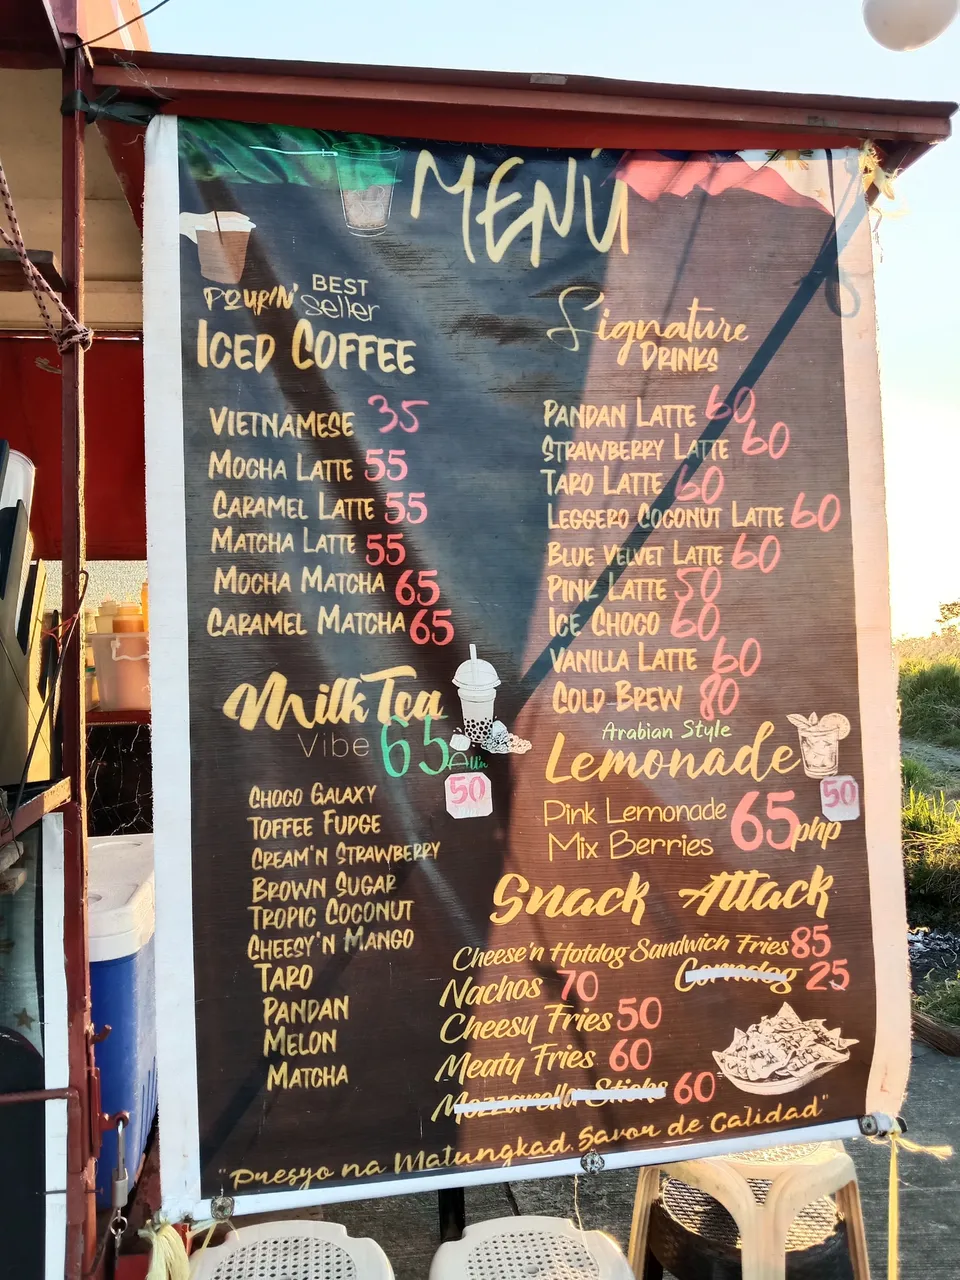 MENU
POURIN' BEST Seller
ICED COFFEE
VIETNAMESE 35
MOCHA LATTE 55
CARAMEL LATTE 55
MATCHA LATTE 55
MOCHA MATCHA 65
CARAMEL MATCHA 65
Milk Tea
Vibe 65 All's
50
CHOCO GALAXY
TOFFEE FUDGE
CREAM'N STRAWBERRY
BROWN SUGAR
TROPIC COCONUT
CHEESY'N MANGO
TARO
PANDAN
MELON
MATCHA
Signature
DRINKS
PANDAN LATTE 60
STRAWBERRY LATTE 60
TARO LATTE 60
LEGGERO COCONUT LATTE 60
BLUE VELVET LATTE 60
PINK LATTE 50
ICE CHOCO 60
VANILLA LATTE 60
COLD BREW 80
Arabian Style
Lemonade
50
Pink Lemonade 65 php
Mix Berries
Snack Attack
Cheese'n Hotdog Sandwich Fries 85
Corndog 25
Nachos 70
Cheesy Fries 50
Meaty Fries 60
Mozzarella Sticks 60
"Presyo na Matungkad. Savor de Calidad"